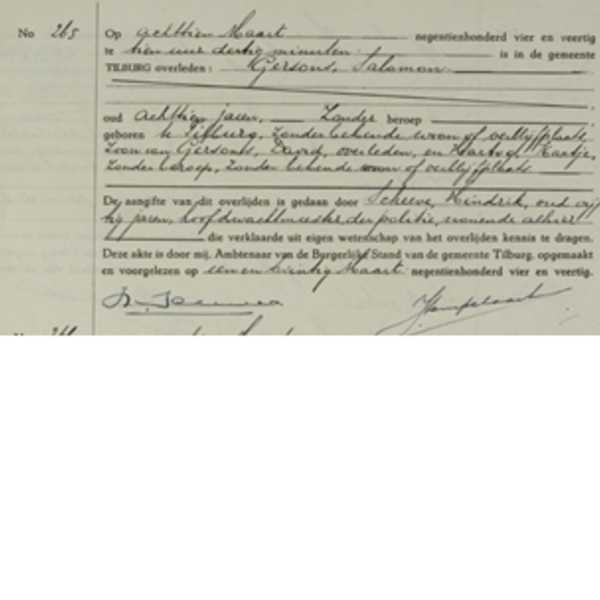 No 265
Op achttien Maart negentienhonderd vier en veertig
te tien uur dertig minuten is in de gemeente
TILBURG overleden: Gersons, Salamon
oud achttien jaren, Zonder beroep
geboren te Tilburg, zonder bekende woon of verblijfplaats
Zoon van Gersons, David, overleden, en Hartog, Kaatje,
zonder beroep, zonder bekende woon of verblijfplaats
De aangifte van dit overlijden is gedaan door Scheeve, Hindrik, oud vijf
tig jaren, hoofdwachtmeester der politie, wonende alhier
die verklaarde uit eigen wetenschap van het overlijden kennis te dragen.
Deze akte is door mij, Ambtenaar van de Burgerlijke Stand van de gemeente Tilburg, opgemaakt
en voorgelezen op een en twintig Maart negentienhonderd vier en veertig.